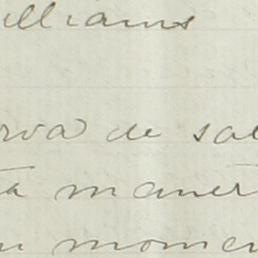 illiams
rva de sal
ta maner
un momen